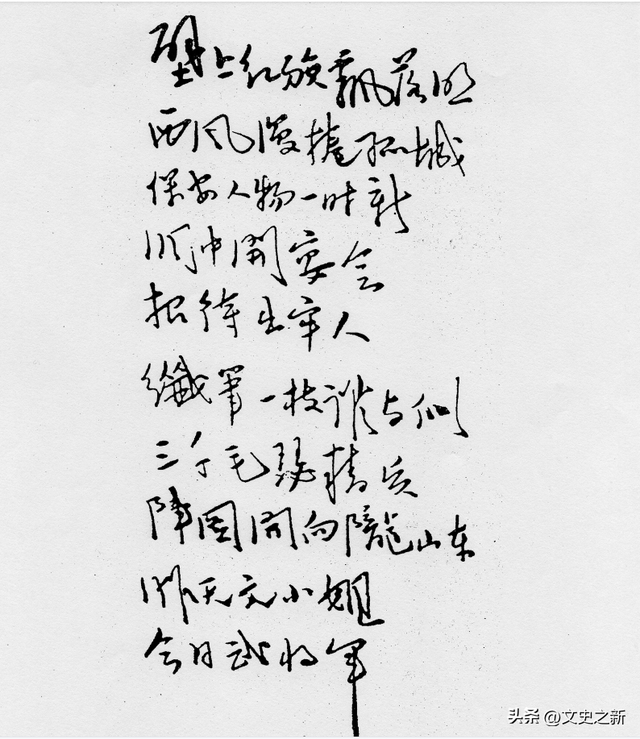 壁上红旗飘落照
西风漫捲孤城
保安人物一时新
洞中開宴会
招待出牢人
纖筆一枝谁与似
三千毛瑟精兵
陣图開向隴山东
昨天文小姐
今日武将军
头条 @文史之新